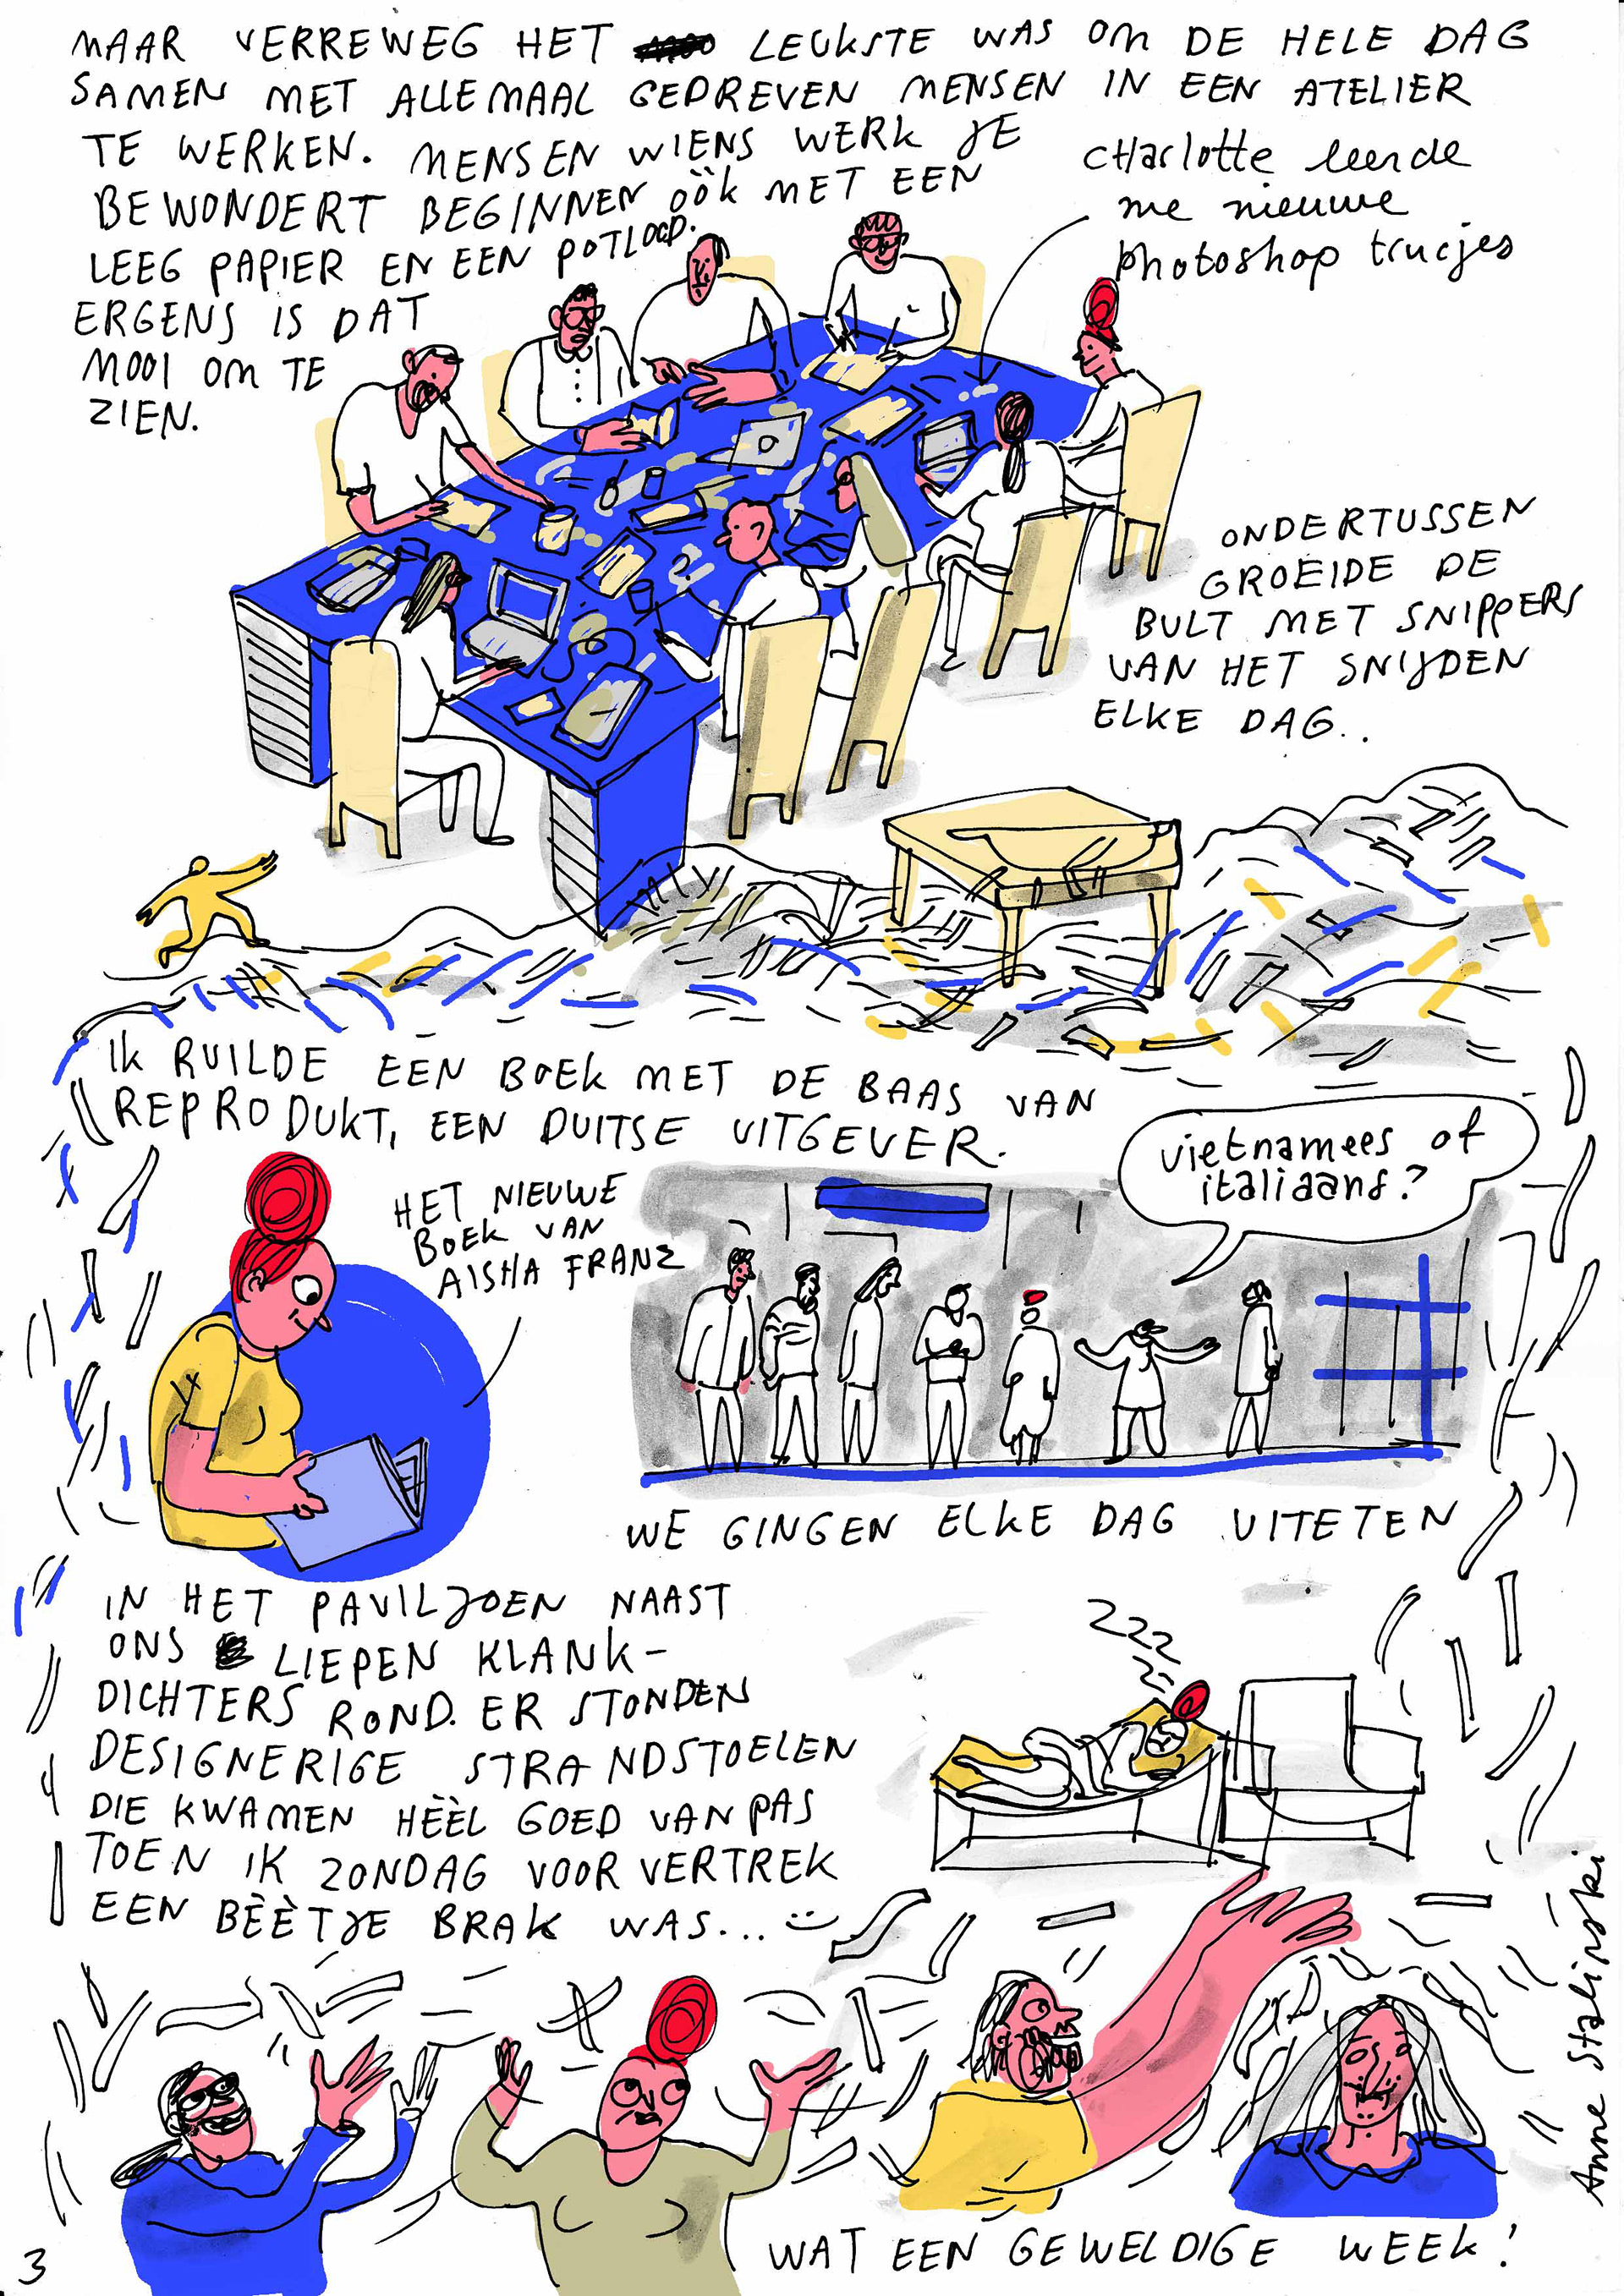 MAAR VERREWEG HET LEUKSTE WAS OM DE HELE DAG
SAMEN MET ALLEMAAL GEDREVEN MENSEN IN EEN ATELIER
TE WERKEN. MENSEN WIENS WERK JE
BEWONDERT BEGINNEN ÓÓK MET EEN
LEEG PAPIER EN EEN POTLOOD.
ERGENS IS DAT
MOOI OM TE
ZIEN.
CHarlotte leerde
me nieuwe
photoshop trucjes
ONDERTUSSEN
GROEIDE DE
BULT MET SNIPPERS
VAN HET SNIJDEN
ELKE DAG..
IK RUILDE EEN BOEK MET DE BAAS VAN
REPRODUKT, EEN DUITSE UITGEVER.
HET NIEUWE
BOEK VAN
AISHA FRANZ
vietnamees of
italiaans?
WE GINGEN ELKE DAG UITETEN
IN HET PAVILJOEN NAAST
ONS LIEPEN KLANK-
DICHTERS ROND. ER STONDEN
DESIGNERIGE STRANDSTOELEN
DIE KWAMEN HÈÈL GOED VAN PAS
TOEN IK ZONDAG VOOR VERTREK
EEN BÈÈTJE BRAK WAS... :)
ZZZ
ZZ
WAT EEN GEWELDIGE WEEK!
Anne Stalinski
3